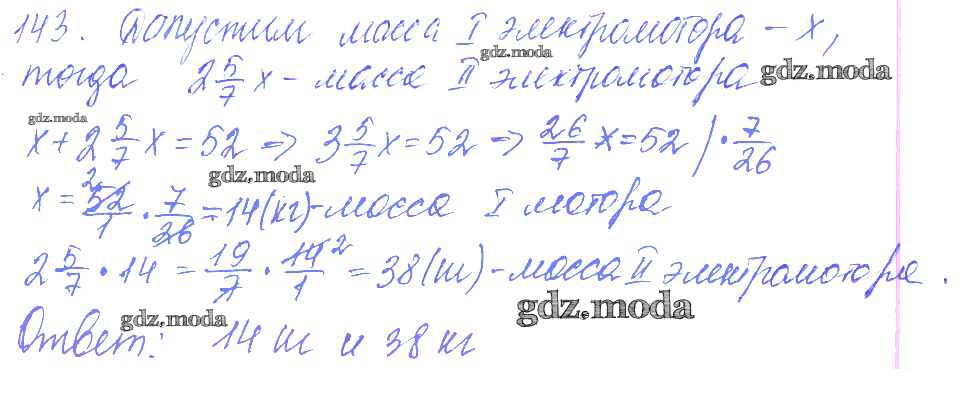 143. Допустим масса I электромотора – x,
gdz.moda
тогда 2 5/7 x – масса II электромотора
gdz.moda
gdz.moda
x + 2 5/7 x = 52 => 3 5/7 x = 52 => 26/7 x = 52 | · 7/26
gdz.moda
x = 52/1 · 7/26 = 14 (кг) – масса I мотора
2 5/7 · 14 = 19/7 · 14/1 = 38 (кг) – масса II электромотора.
gdz.moda
gdz.moda
Ответ: 14 кг и 38 кг